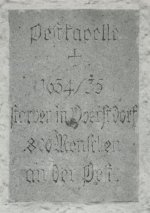 Pestkapelle
1634/35
starben in
800 Menschen
an der Pest.